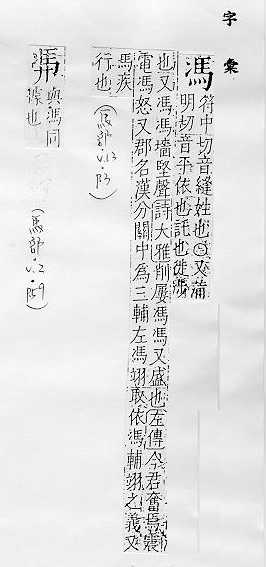 字彙
馮
符中切音縫姓也○又蒲
明切音平依也託也徒涉
也又馮馮墻堅聲詩大雅削屢馮馮又盛也左傳今君奮焉震
電馮怒又郡名漢分關中為三輔左馮翊取依馮輔翊之義又
馬疾
行也
(馬部
與馮同
據也
(馬部